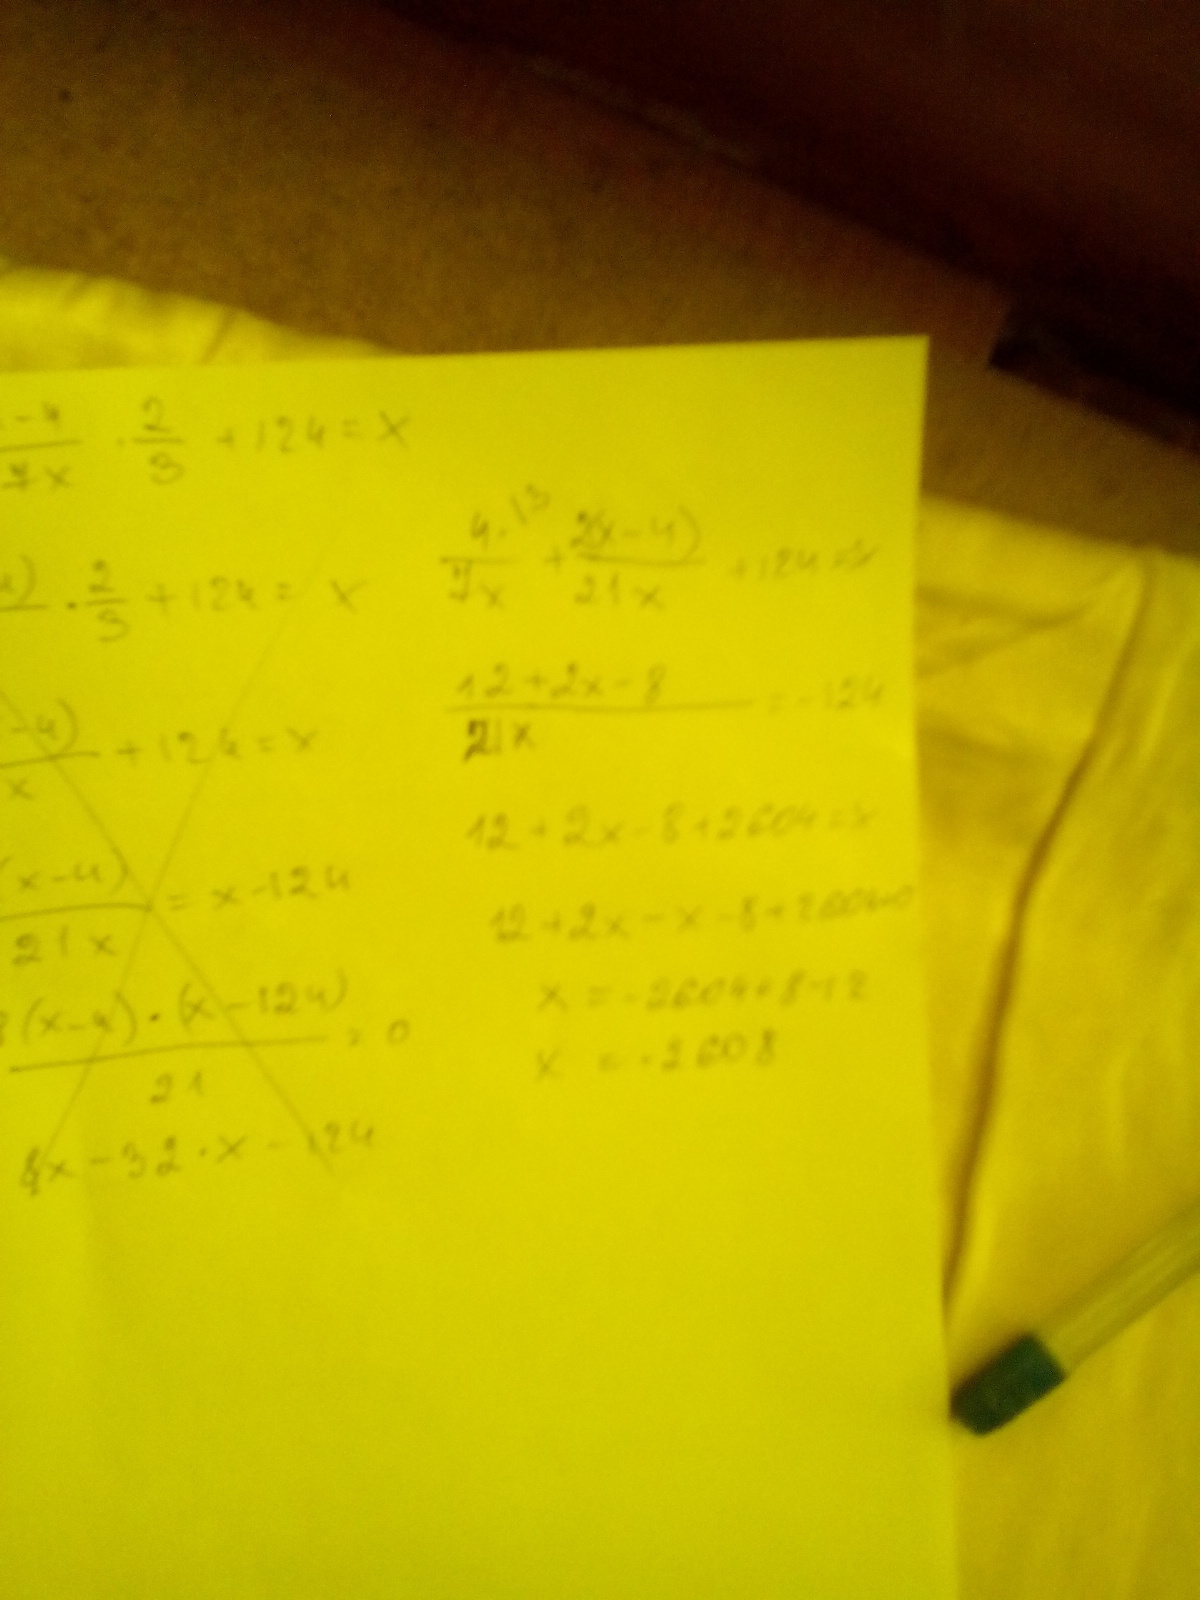 -4/7x · 2/3 + 124 = x
) · 2/3 + 124 = x
-4)/x + 124 = x
(x-4)/21x = x-124
(x-4)·(x-124)/21 = 0
x-32·x-124
4·|3/7x + 2(x-4)/21x + 124=x
12+2x-8/21x = -124
12+2x-8+2604=x
12+2x-x-8+2604=0
x = -2604+8-12
x = -2608